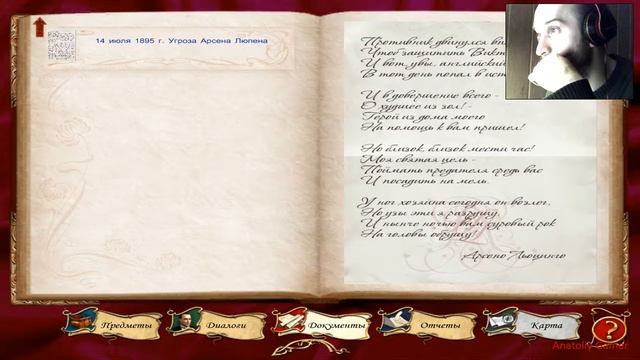 14 июля 1895 г. Угроза Арсена Люпена
Противник двинулся
Чтоб защитить
И вот, увы,
В тот день попал в
И в довершение всего -
О худшее из зол! -
Герой из дома моего
На помощь к вам пришел!
Но близок, близок мести час!
Моя святая цель -
Поймать предателя средь вас
И посадить на мель.
У ног хозяина сегодня он возлег,
Но узы эти я разрушу,
И нынче ночью вам суровый рок
На головы обрушу!
Арсено Льюпинго
Предметы
Диалоги
Документы
Отчеты
Карта
?
Anatoliy Gamer